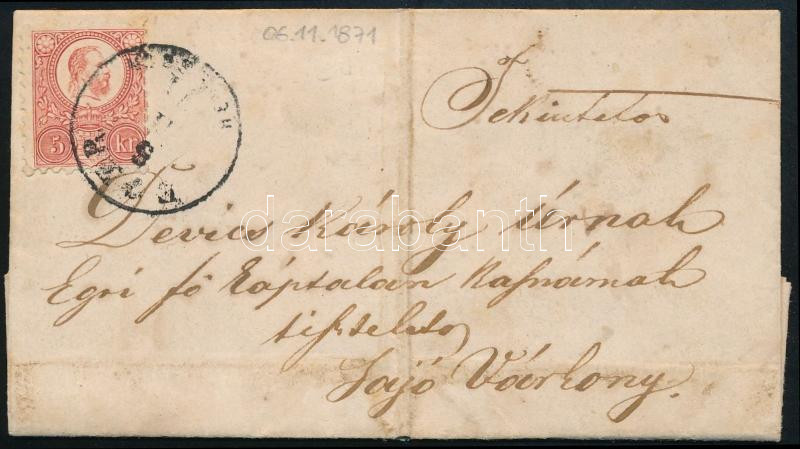 06.11.1871
5 kr
Tekintetes
Devics Károly Úrnak
Egri fő káptalan Kasznárnak
tisztelettel
Sajó Várkony.
darabanth